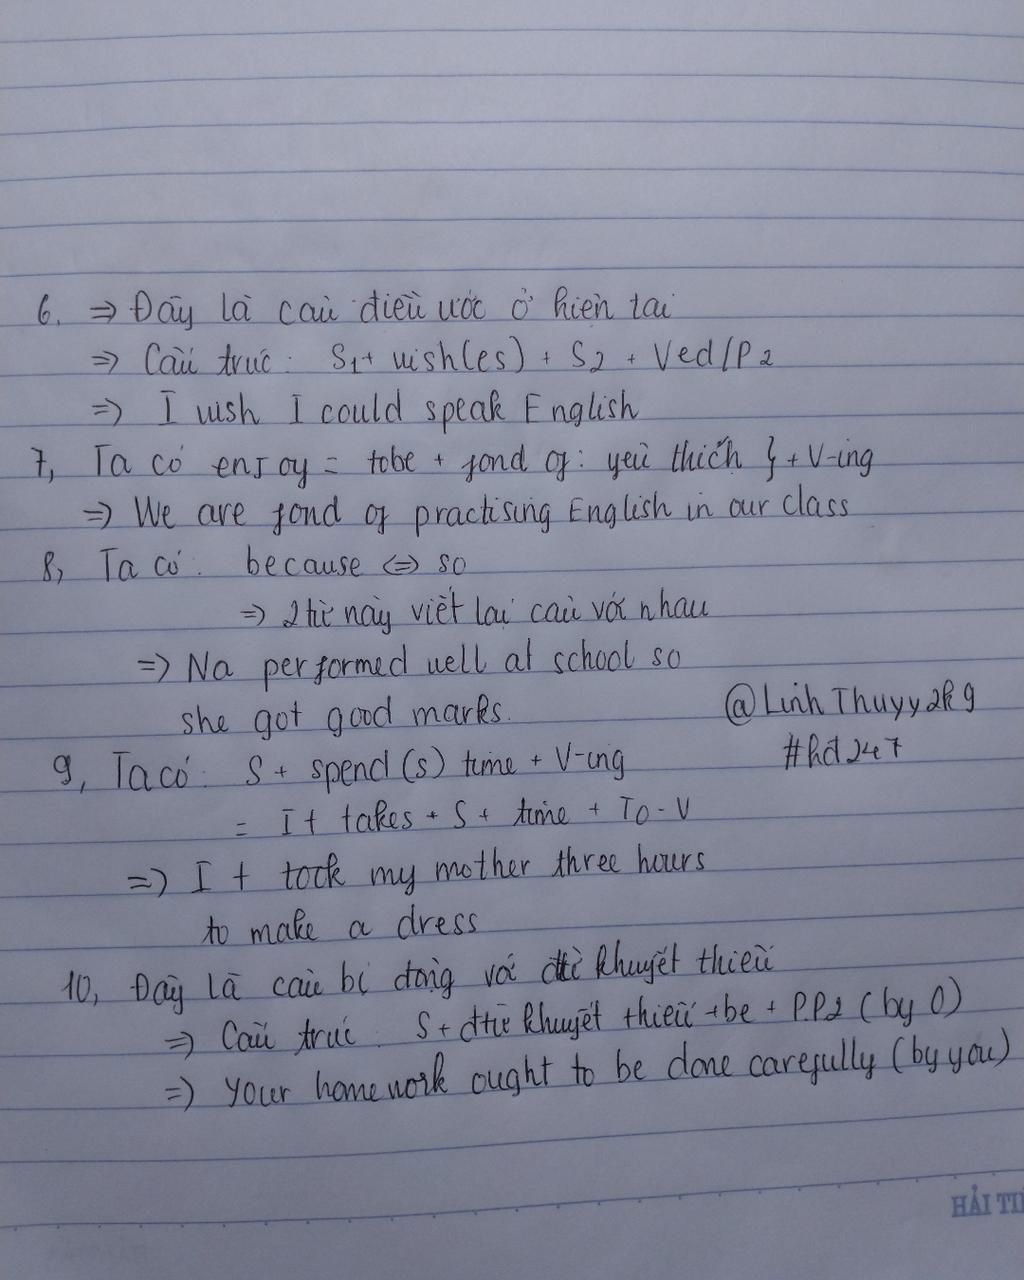 6. ⇒ Đây là câu điều ước ở hiện tại
⇒ Cấu trúc: S1 + wish(es) + S2 + Ved/P2
⇒ I wish I could speak English
7, Ta có enjoy = tobe + fond of: yêu thích } + V-ing
⇒ We are fond of practising English in our class
8, Ta có: because <=> so
⇒ 2 từ này viết lại câu với nhau
⇒ Na performed well at school so
she got good marks.
@LinhThuyy2k9
#hd247
9, Ta có: S + spend(s) time + V-ing
= It takes + S + time + To-V
⇒ It took my mother three hours
to make a dress
10, Đây là câu bị động với đtừ khuyết thiếu
⇒ Cấu trúc: S + đtừ khuyết thiếu + be + P.P2 (by O)
⇒ Your homework ought to be done carefully (by you)
HẢI TI